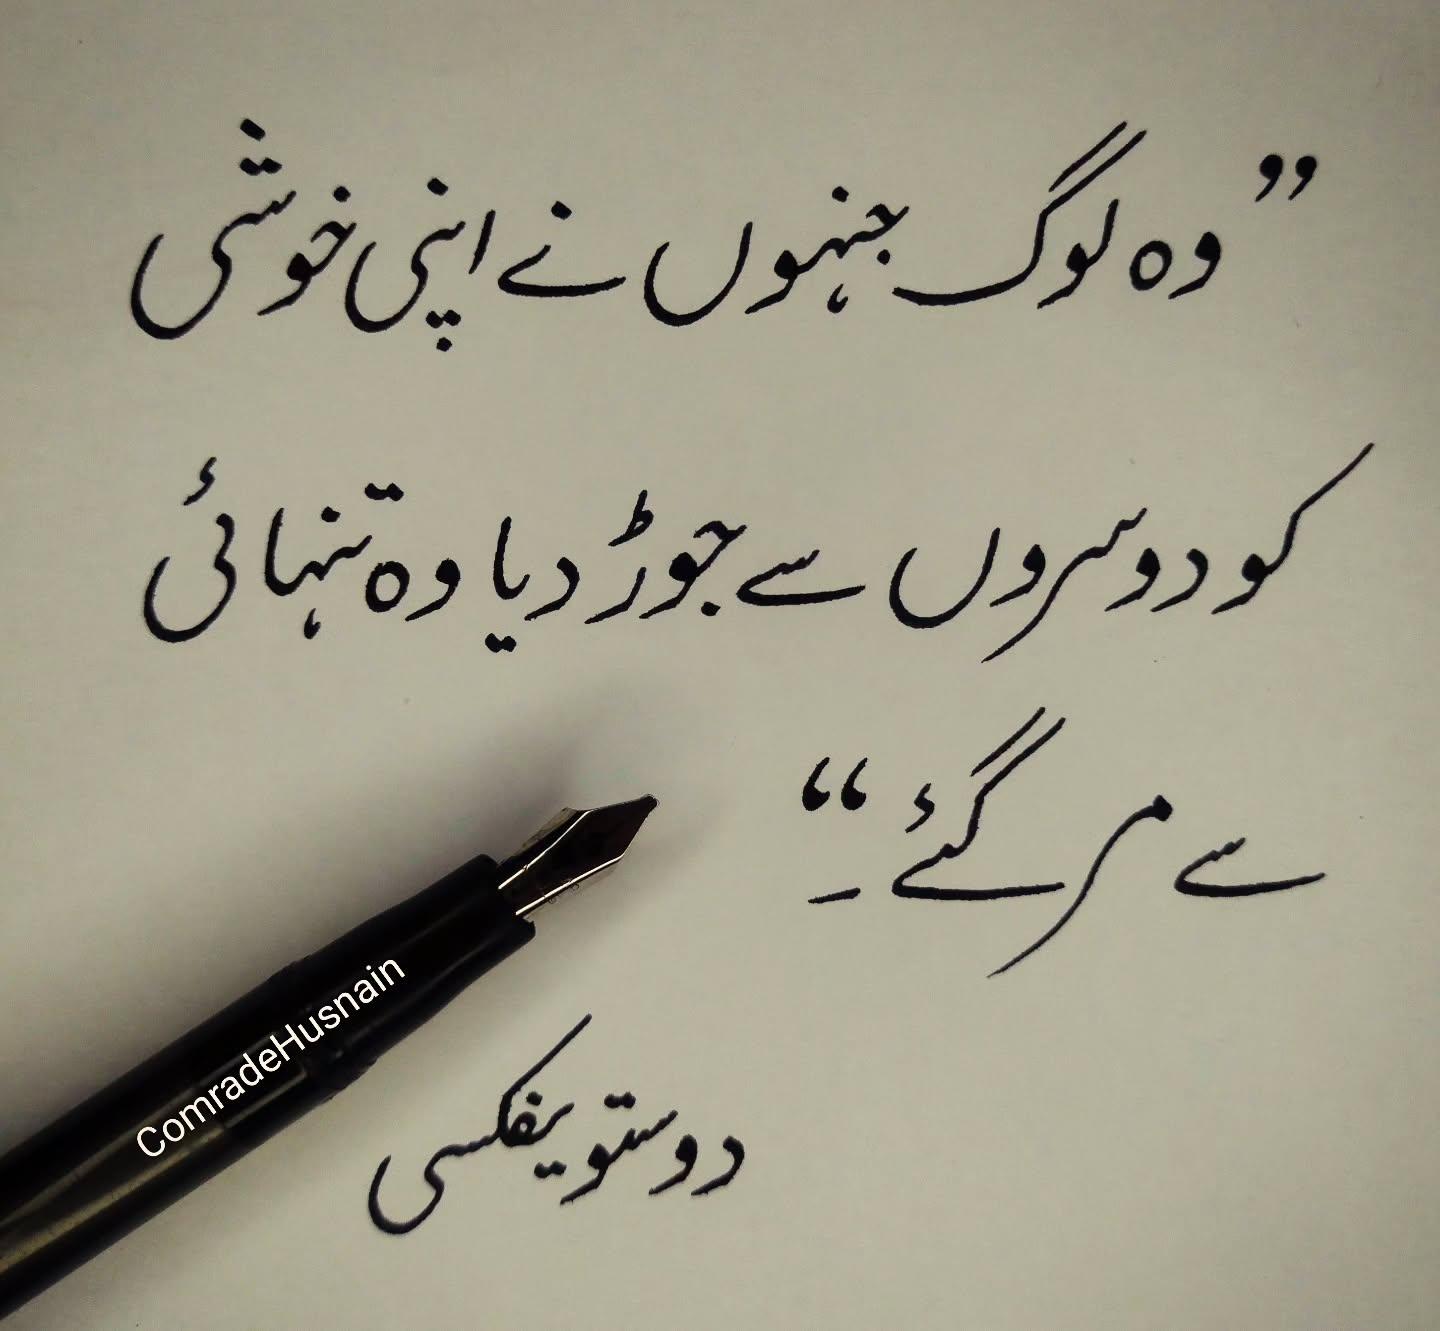 ”وہ لوگ جنہوں نے اپنی خوشی
کو دوسروں سے جوڑ دیا وہ تنہائی
سے مر گئے۔“
دوستویفکسی
ComradeHusnain